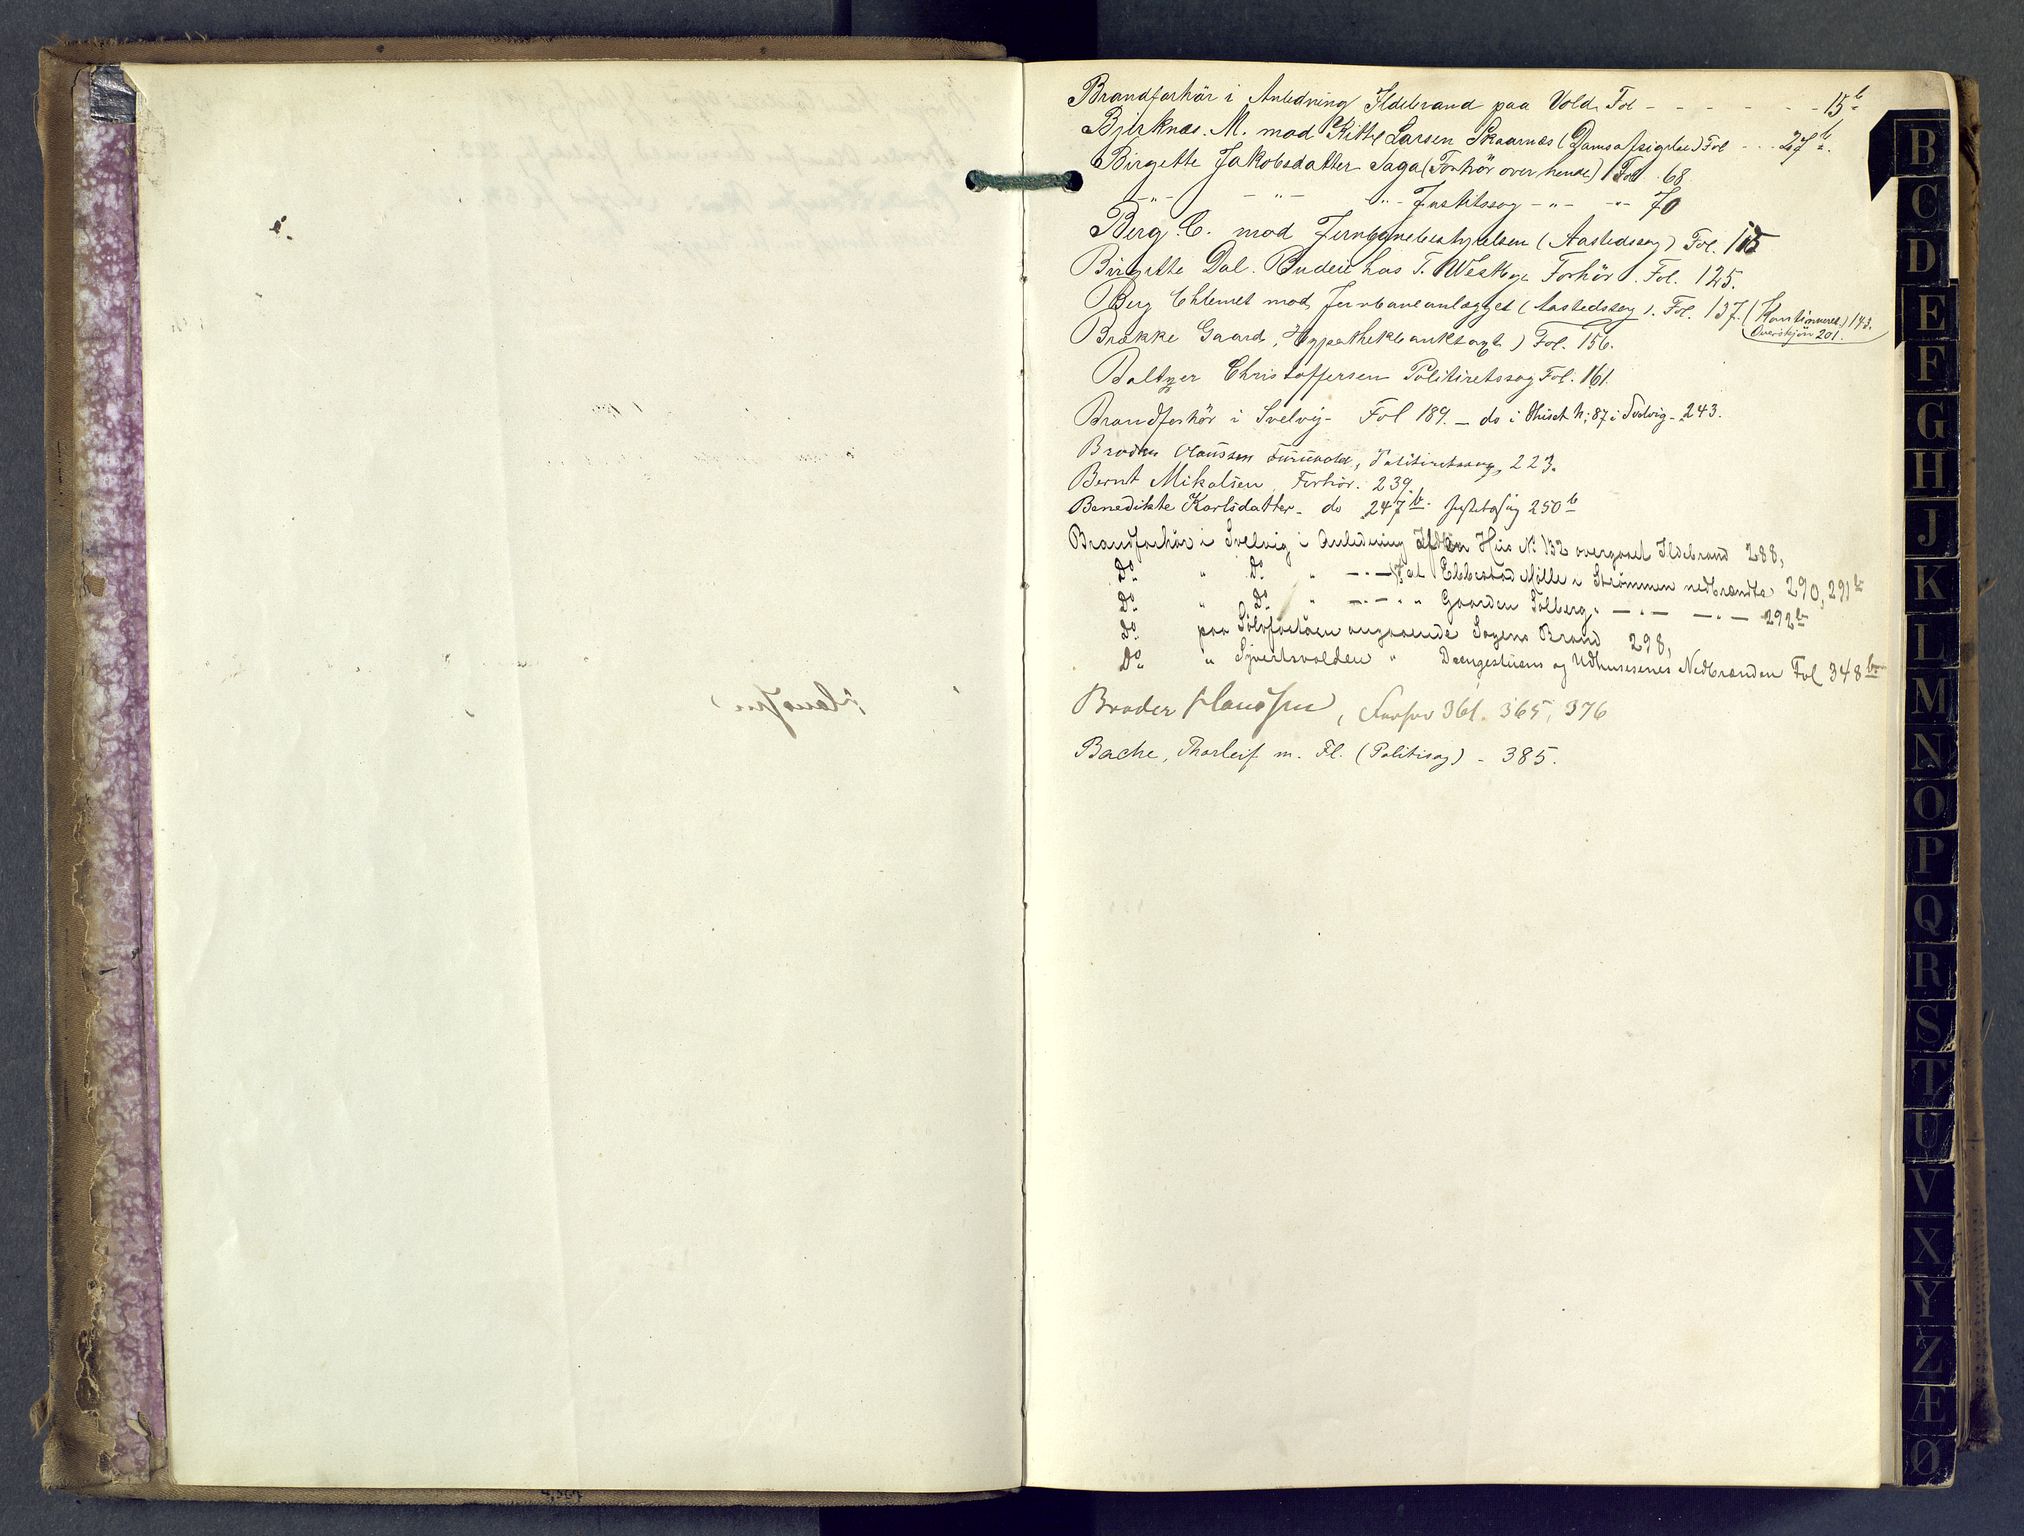 Brandforhör i Anledning Ildebrand paa Vold Fol - - - - - - 15 b
Bjerknæs. M. mod Kittel Larsen Skaarnæs (Domsafsigelse) Fol - - - 27 b.
Birgitte Jakobsdatter Saga (Forhör over hende) Fol. 68
-"- -"- "- Justitssag -"- -"- 70
Berg. C. mod Jernbanebestyrelsen (Aastedssag) Fol. 115
Birgitte Dal. Budeie hos T. Westbye Forhör. Fol. 125.
Berg Clemet mod Jernbaneanlægget (Aastedssag). Fol. 137. (Kontinueret) 143.
Overskjön 201.
Brække Gaard, Hypothekbanktagt) Fol. 156.
Baltzer Christoffersen Politiretssag Fol. 161.
Brandforhör i Svelvig - Fol 189. - do i Huset N: 87 i Svelvig - 243.
Broder Clausen Furuvold, Politiretssag, 223.
Bernt Mikalsen, Forhör. 239.
Benedikte Karlsdatter - do 247 b. Justitssag 250 b
Brandforhör i Svelvig i Anledning Hus No 132 overgaaet Ildebrand 288,
Do. " Do. " -"- at Ebbestad Mølle i Strømmen nedbrændte 290, 291 b
Do. " Do. " -"- " Gaarden Solberg " -"- -"- 292 b
Do. paa Sölvfastöen angaaende Sagens Brand 298,
Do. " Sjvertsvolden " Drengestuens og Udhusesenes Nedbrænden Fol 348 b
Broder Hanssen, Forhør 361. 365, 376
Bache, Thorleif m. Fl. (Politisag) - 385.
B
C
D
E
F
G
H
J
K
L
M
N
O
P
Q
R
S
T
U
V
X
Y
Z
Æ
Ø